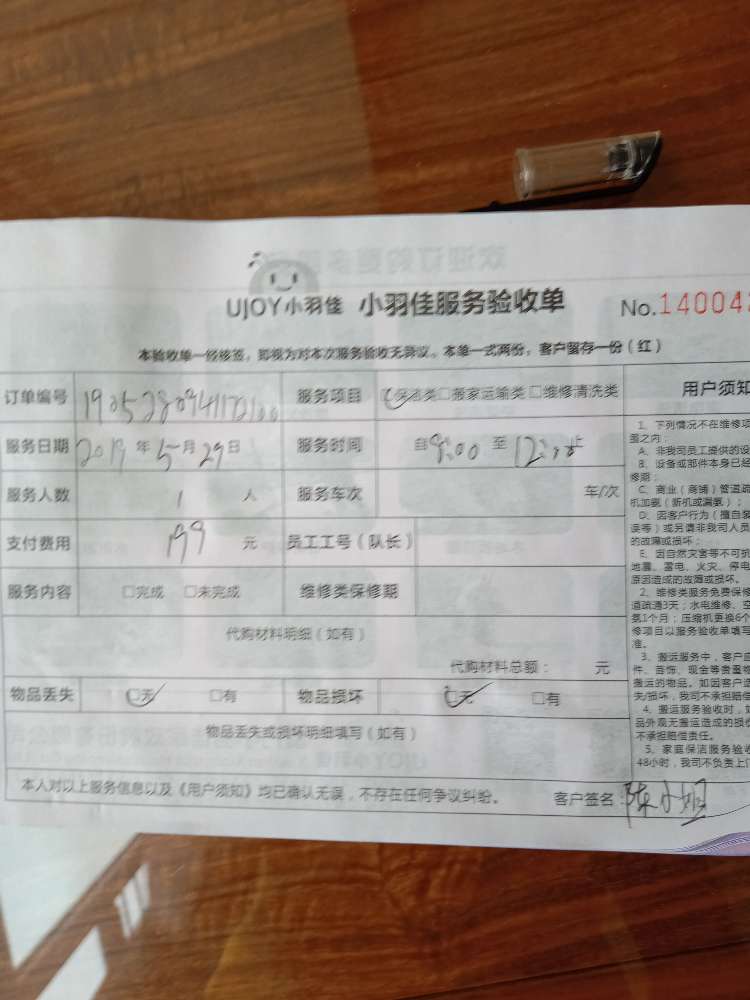 UJOY小羽佳 小羽佳服务验收单 No.14004
本验收单一经核签，即视为对本次服务验收无异议。本单一式两份，客户留存一份（红）
订单编号 服务项目 保洁类□搬家运输类□维修清洗类 用户须知
服务日期 2019年5月29日 服务时间 自9:00至12:00止
服务人数 1 人 服务车次 车/次
支付费用 199 元 员工工号（队长）
服务内容 □完成 □未完成 维修类保修期
代购材料明细（如有）
代购材料总额： 元
物品丢失 ☑无 □有 物品损坏 ☑无 □有
物品丢失或损坏明细填写（如有）
本人对以上服务信息以及《用户须知》均已确认无误，不存在任何争议纠纷。 客户签名：陈小姐
1、下列情况不在维修项
围之内：
A、非我司员工提供的设
B、设备或部件本身已经
修期；
C、商业（商铺）管道疏
机加氨（新机或漏氨）；
D、因客户行为（擅自装
误等）或另请非我司人员
的故障或损坏；
E、因自然灾害等不可抗
地震、雷电、火灾、停电
原因造成的故障或损坏。
2、维修类服务免费保修
道疏通3天；水电维修、空
氨1个月；压缩机更换6个
修项目以服务验收单填写
准。
3、搬运服务中，客户应
件、首饰、现金等贵重物
搬运的物品。如因客户遗
失/损坏，我司不承担赔偿
4、搬运服务验收时，如
品外观无搬运造成的损伤
不承担赔偿责任。
5、家庭保洁服务验收
48小时，我司不负责上门